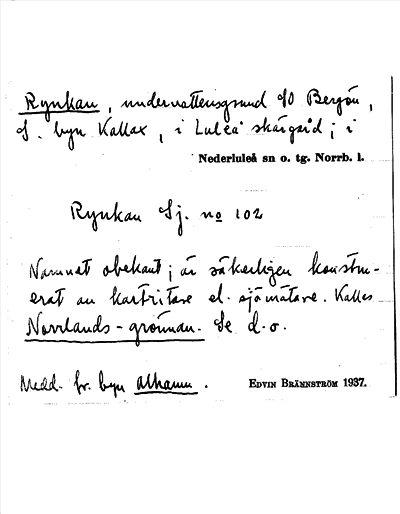 Rynkan, undervattensgrund SO Bergön,
S. byn Kallax, i Luleå skärgård; i
Nederluleå sn o. tg. Norrb. l.
Rynkan Sj. no 102
Namnet obekant; är säkerligen konstru-
erat av kartritare el. sjömätare. Kallas
Norrlands-grönnan. Se d.o.
Medd. fr. byn Alhamn.
EDVIN BRÄNNSTRÖM 1937.